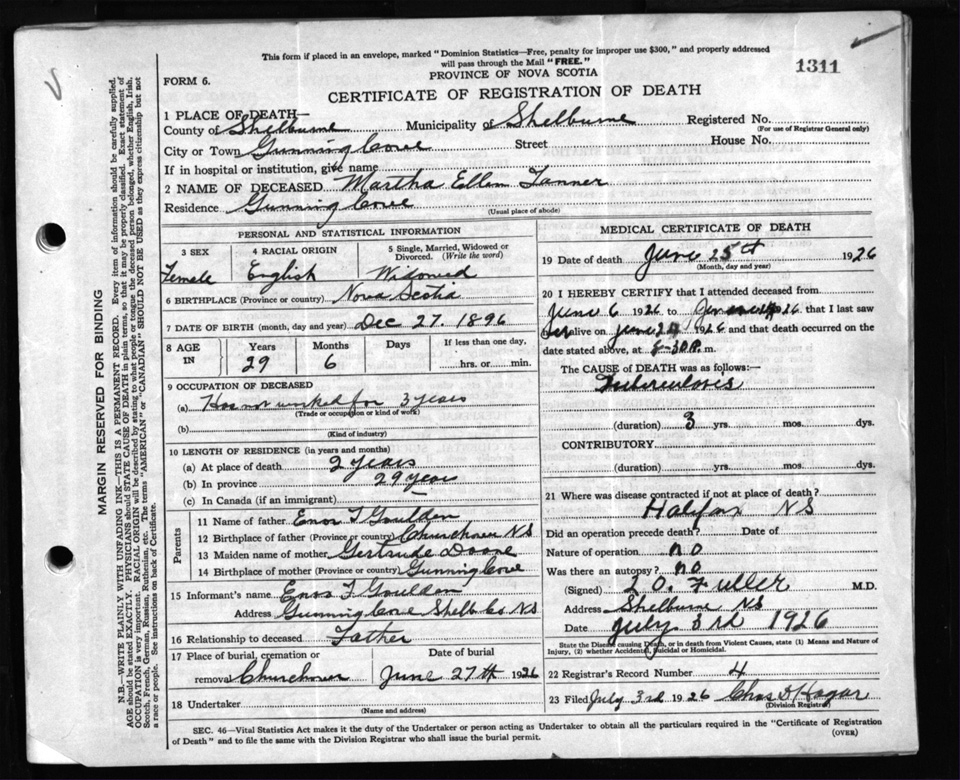 This form if placed in an envelope, marked "Dominion Statistics—Free, penalty for improper use $300," and properly addressed
will pass through the Mail "FREE."
PROVINCE OF NOVA SCOTIA
1311
FORM 6.
CERTIFICATE OF REGISTRATION OF DEATH
1 PLACE OF DEATH—
County of Shelburne Municipality of Shelburne Registered No.
(For use of Registrar General only)
City or Town Gunning Cove Street House No.
If in hospital or institution, give name
2 NAME OF DECEASED Martha Ellen Tanner
Residence Gunning Cove
(Usual place of abode)
PERSONAL AND STATISTICAL INFORMATION
3 SEX 4 RACIAL ORIGIN 5 Single, Married, Widowed or
Divorced. (Write the word)
Female English Widowed
6 BIRTHPLACE (Province or country) Nova Scotia
7 DATE OF BIRTH (month, day and year) Dec 27. 1896
8 AGE IN Years Months Days If less than one day,
29 6 hrs. or min.
9 OCCUPATION OF DECEASED
(a) Has not worked for 3 years
(Trade or occupation or kind of work)
(b)
(Kind of industry)
10 LENGTH OF RESIDENCE (in years and months)
(a) At place of death 2 years
(b) In province 29 years
(c) In Canada (if an immigrant)
Parents
11 Name of father Enos T Goulden
12 Birthplace of father (Province or country) Churchover NS
13 Maiden name of mother Gertrude Doane
14 Birthplace of mother (Province or country) Gunning Cove
15 Informant's name Enos T. Goulden
Address Gunning Cove Shelb Co NS
16 Relationship to deceased Father
17 Place of burial, cremation or Date of burial
removal Churchover June 27th 1926
18 Undertaker
(Name and address)
MEDICAL CERTIFICATE OF DEATH
19 Date of death June 25th 1926
(Month, day and year)
20 I HEREBY CERTIFY that I attended deceased from
June 6 1926 to 1926 that I last saw
her alive on June 24 1926 and that death occurred on the
date stated above, at 8-30 P. m.
The CAUSE of DEATH was as follows:—
Tuberculosis
(duration) 3 yrs. mos. dys.
CONTRIBUTORY
(duration) yrs. mos. dys.
21 Where was disease contracted if not at place of death?
Halifax NS
Did an operation precede death? Date of
Nature of operation no
Was there an autopsy? no
(Signed) L O. Fuller M.D.
Address Shelburne NS
Date July 3rd 1926
State the Disease causing Death, or in death from Violent Causes, state (1) Means and Nature of
Injury, (2) whether Accidental, Suicidal or Homicidal.
22 Registrar's Record Number 4
23 Filed July 3rd 1926 Chas D Hagar
(Division Registrar)
SEC. 46—Vital Statistics Act makes it the duty of the Undertaker or person acting as Undertaker to obtain all the particulars required in the "Certificate of Registration
of Death" and to file the same with the Division Registrar who shall issue the burial permit.
(OVER)
MARGIN RESERVED FOR BINDING
N.B.—WRITE PLAINLY WITH UNFADING INK—THIS IS A PERMANENT RECORD. Every item of information should be carefully supplied.
AGE should be stated EXACTLY. PHYSICIANS should STATE CAUSE OF DEATH in plain terms, so that it may be properly classified. Exact statement of
OCCUPATION is very important. RACIAL ORIGIN will be described by stating to what people or tongue the deceased person belonged, whether English, Irish,
Scotch, French, German, Russian, Ruthenian, etc. The terms "AMERICAN" or "CANADIAN" SHOULD NOT BE USED as they express citizenship but not
a race or people. See instructions on back of Certificate.